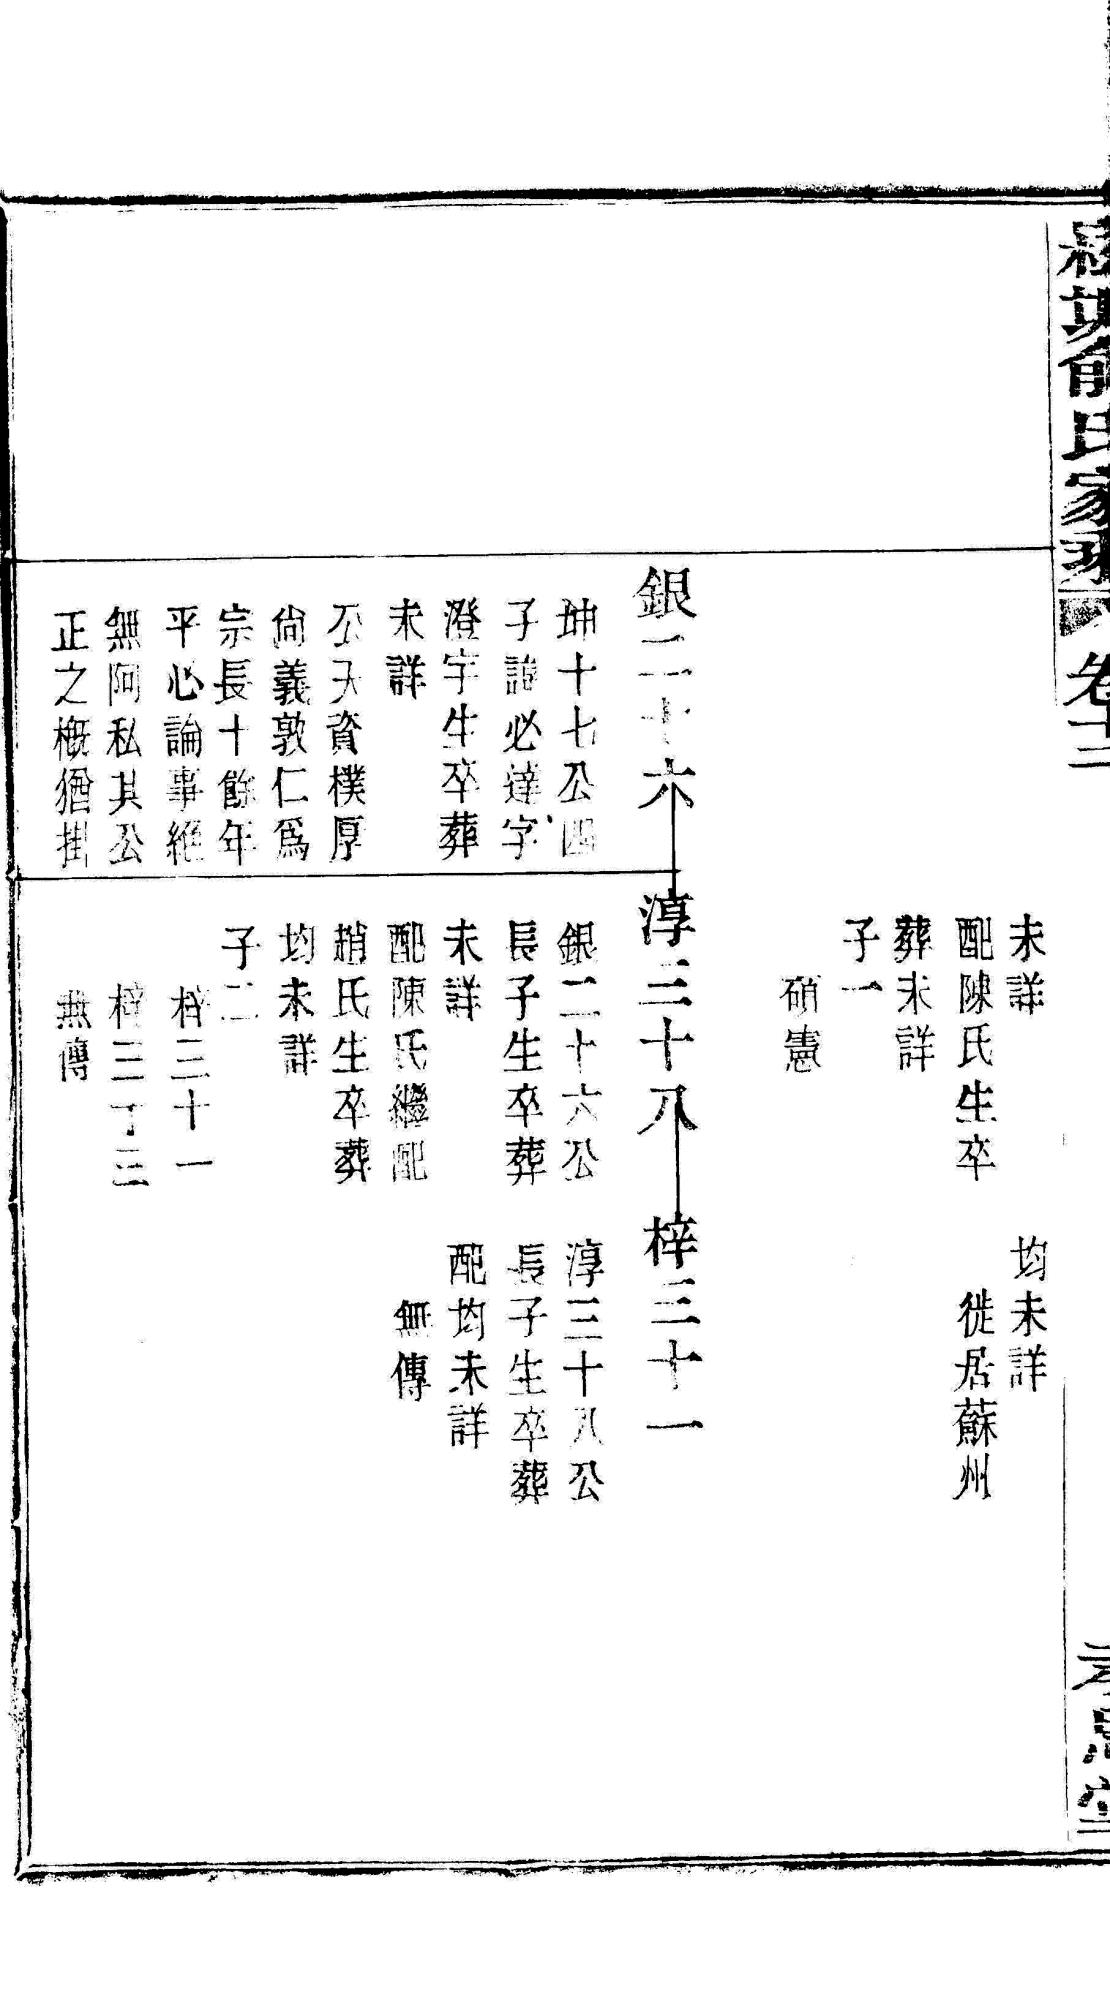 俞氏家
卷十二
未詳
配陳氏生卒
葬未詳
子一
碩憲
均未詳
徙居蘇州
銀二十六
坤十七公四
子諱必達字
澄宇生卒葬
未詳
公天資樸厚
尙義敦仁爲
宗長十餘年
平心論事絕
無阿私其公
正之槪猶掛
淳三十八
銀二十六公
長子生卒葬
未詳
配陳氏繼配
趙氏生卒葬
均未詳
子二
梓三十一
梓三十三
無傳
梓三十一
淳三十八公
長子生卒葬
配均未詳
無傳
堂